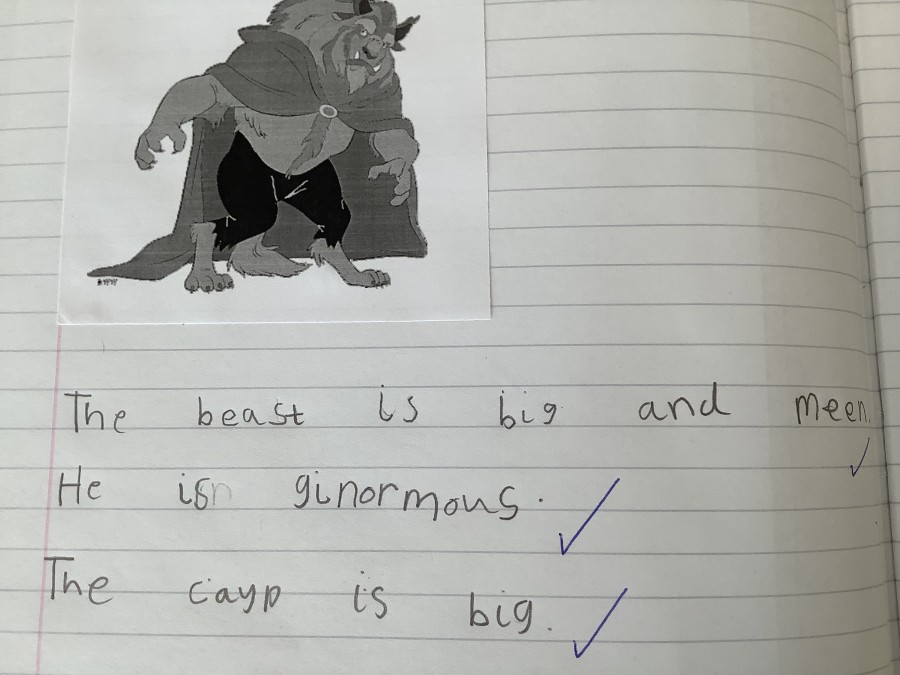 The beast is big and meen.
He is ginormous.
The cayp is big.